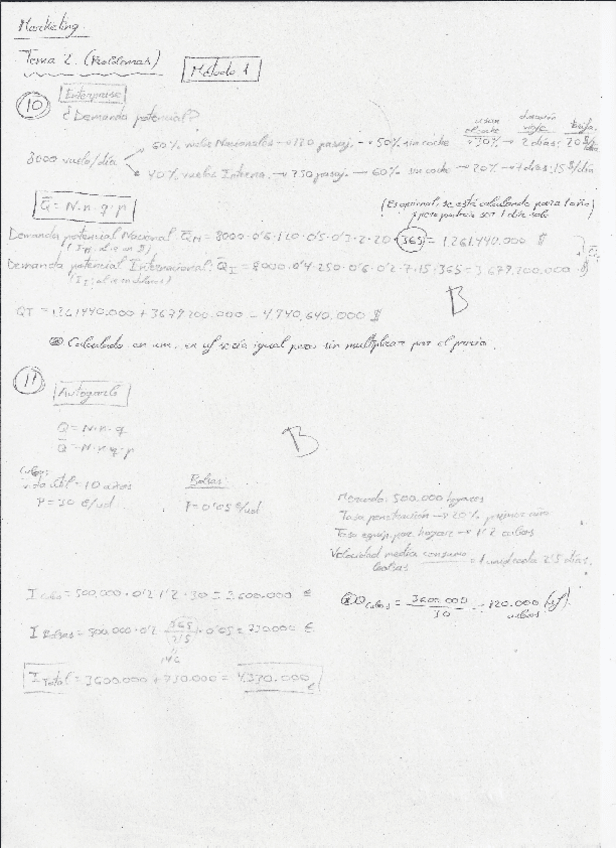 Marketing
Tema 2. (Problemas)
Método 1
10 Enterprise
¿Demanda potencial?
8000 vuelo/día
60% vuelos Nacionales → 120 pasaj. → 50% sin coche → 30% → 2 días: 20 $/día
40% vuelos Interna. → 250 pasaj → 60% sin coche → 20% → 7 días: 15 $/día
Q̄ = N·n·q·p
(Es opcional, se está calculando para 1 año)
Demanda potencial Nacional: Q̄N = 8000·0'6·120·0'5·0'3·2·20·365 = 1.261.440.000 $
Demanda potencial Internacional: Q̄I = 8000·0'4·250·0'6·0'2·7·15·365 = 3.679.200.000 $
QT = 1.261.440.000 + 3.679.200.000 = 4.940.640.000 $
B
Calculado en um, en uf sería igual pero sin multiplicar por el precio.
11
Q = N·n·q
Q̄ = N·n·q·p
B
Cubos:
vida útil = 10 años
P = 30 €/ud.
Bolsas:
P = 0'05 €/ud
Mercado: 500.000 hogares
Tasa penetración → 20% primer año
Tasa equip. por hogar → 1'2 cubos
Velocidad media consumo bolsas = 1 unidad cada 2'5 días.
I Cubo = 500.000·0'2·1'2·30 = 3.600.000 €
Q Cubos = 3.600.000 / 30 = 120.000 (uf) cubos
I Bolsas = 500.000·0'2·(365/2'5)·0'05 = 730.000 €
146
I Total = 3.600.000 + 730.000 = 4.330.000 €